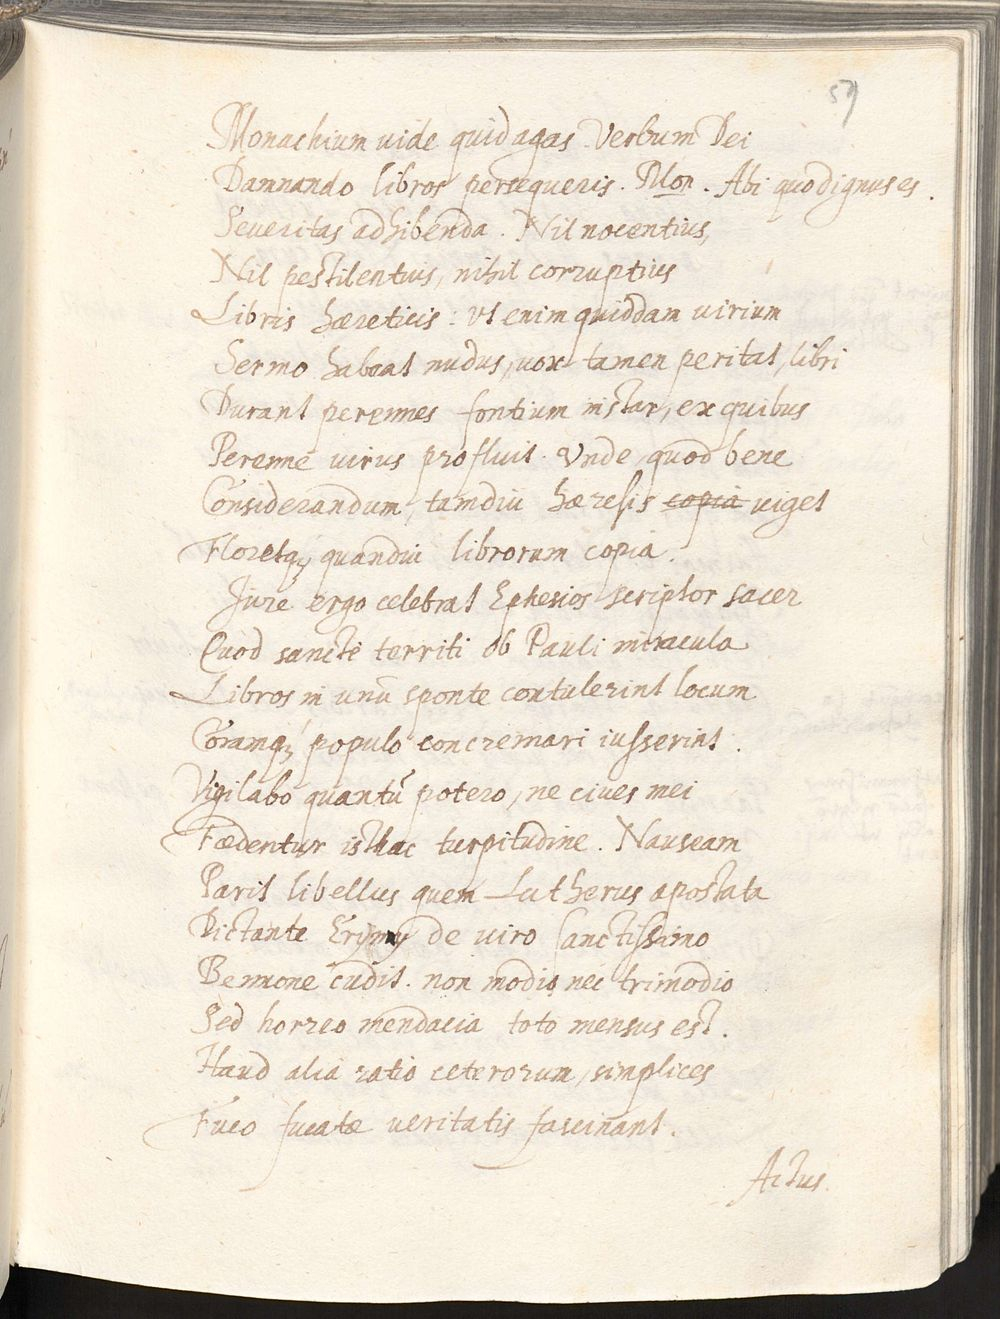 59
Monachium uide quid agas. Verbum Dei
Damnando libros persequeris. Mon. Abi quo dignus es.
Seueritas adhibenda. Nil nocentius,
Nil pestilentius, nihil corruptius
Libris hæreticis: vt enim quiddam uirium
Sermo habeat nudus, uox tamen peritat, libri
Durant perennes fontium instar, ex quibus
Perenne uirus profluit. Vnde, quod bene
Considerandum, tamdiu hæresis copia uiget
Floretq; quandiu librorum copia.
Jure ergo celebrat Ephesios scriptor sacer
Quod sancte territi ob Pauli miracula
Libros in unū sponte contulerint locum
Coramq; populo concremari iusserint.
Vigilabo quantū potero, ne ciues mei
Fœdentur isthac turpitudine. Nauseam
Parit libellus quem Lutherus apostata
Dictante de uiro sanctissimo
Bennone cudit. non modio nec trimodio
Sed horreo mendacia toto mensus est.
Haud alia ratio ceterorum, simplices
Fuco fucatæ ueritatis fascinant.
Actus.